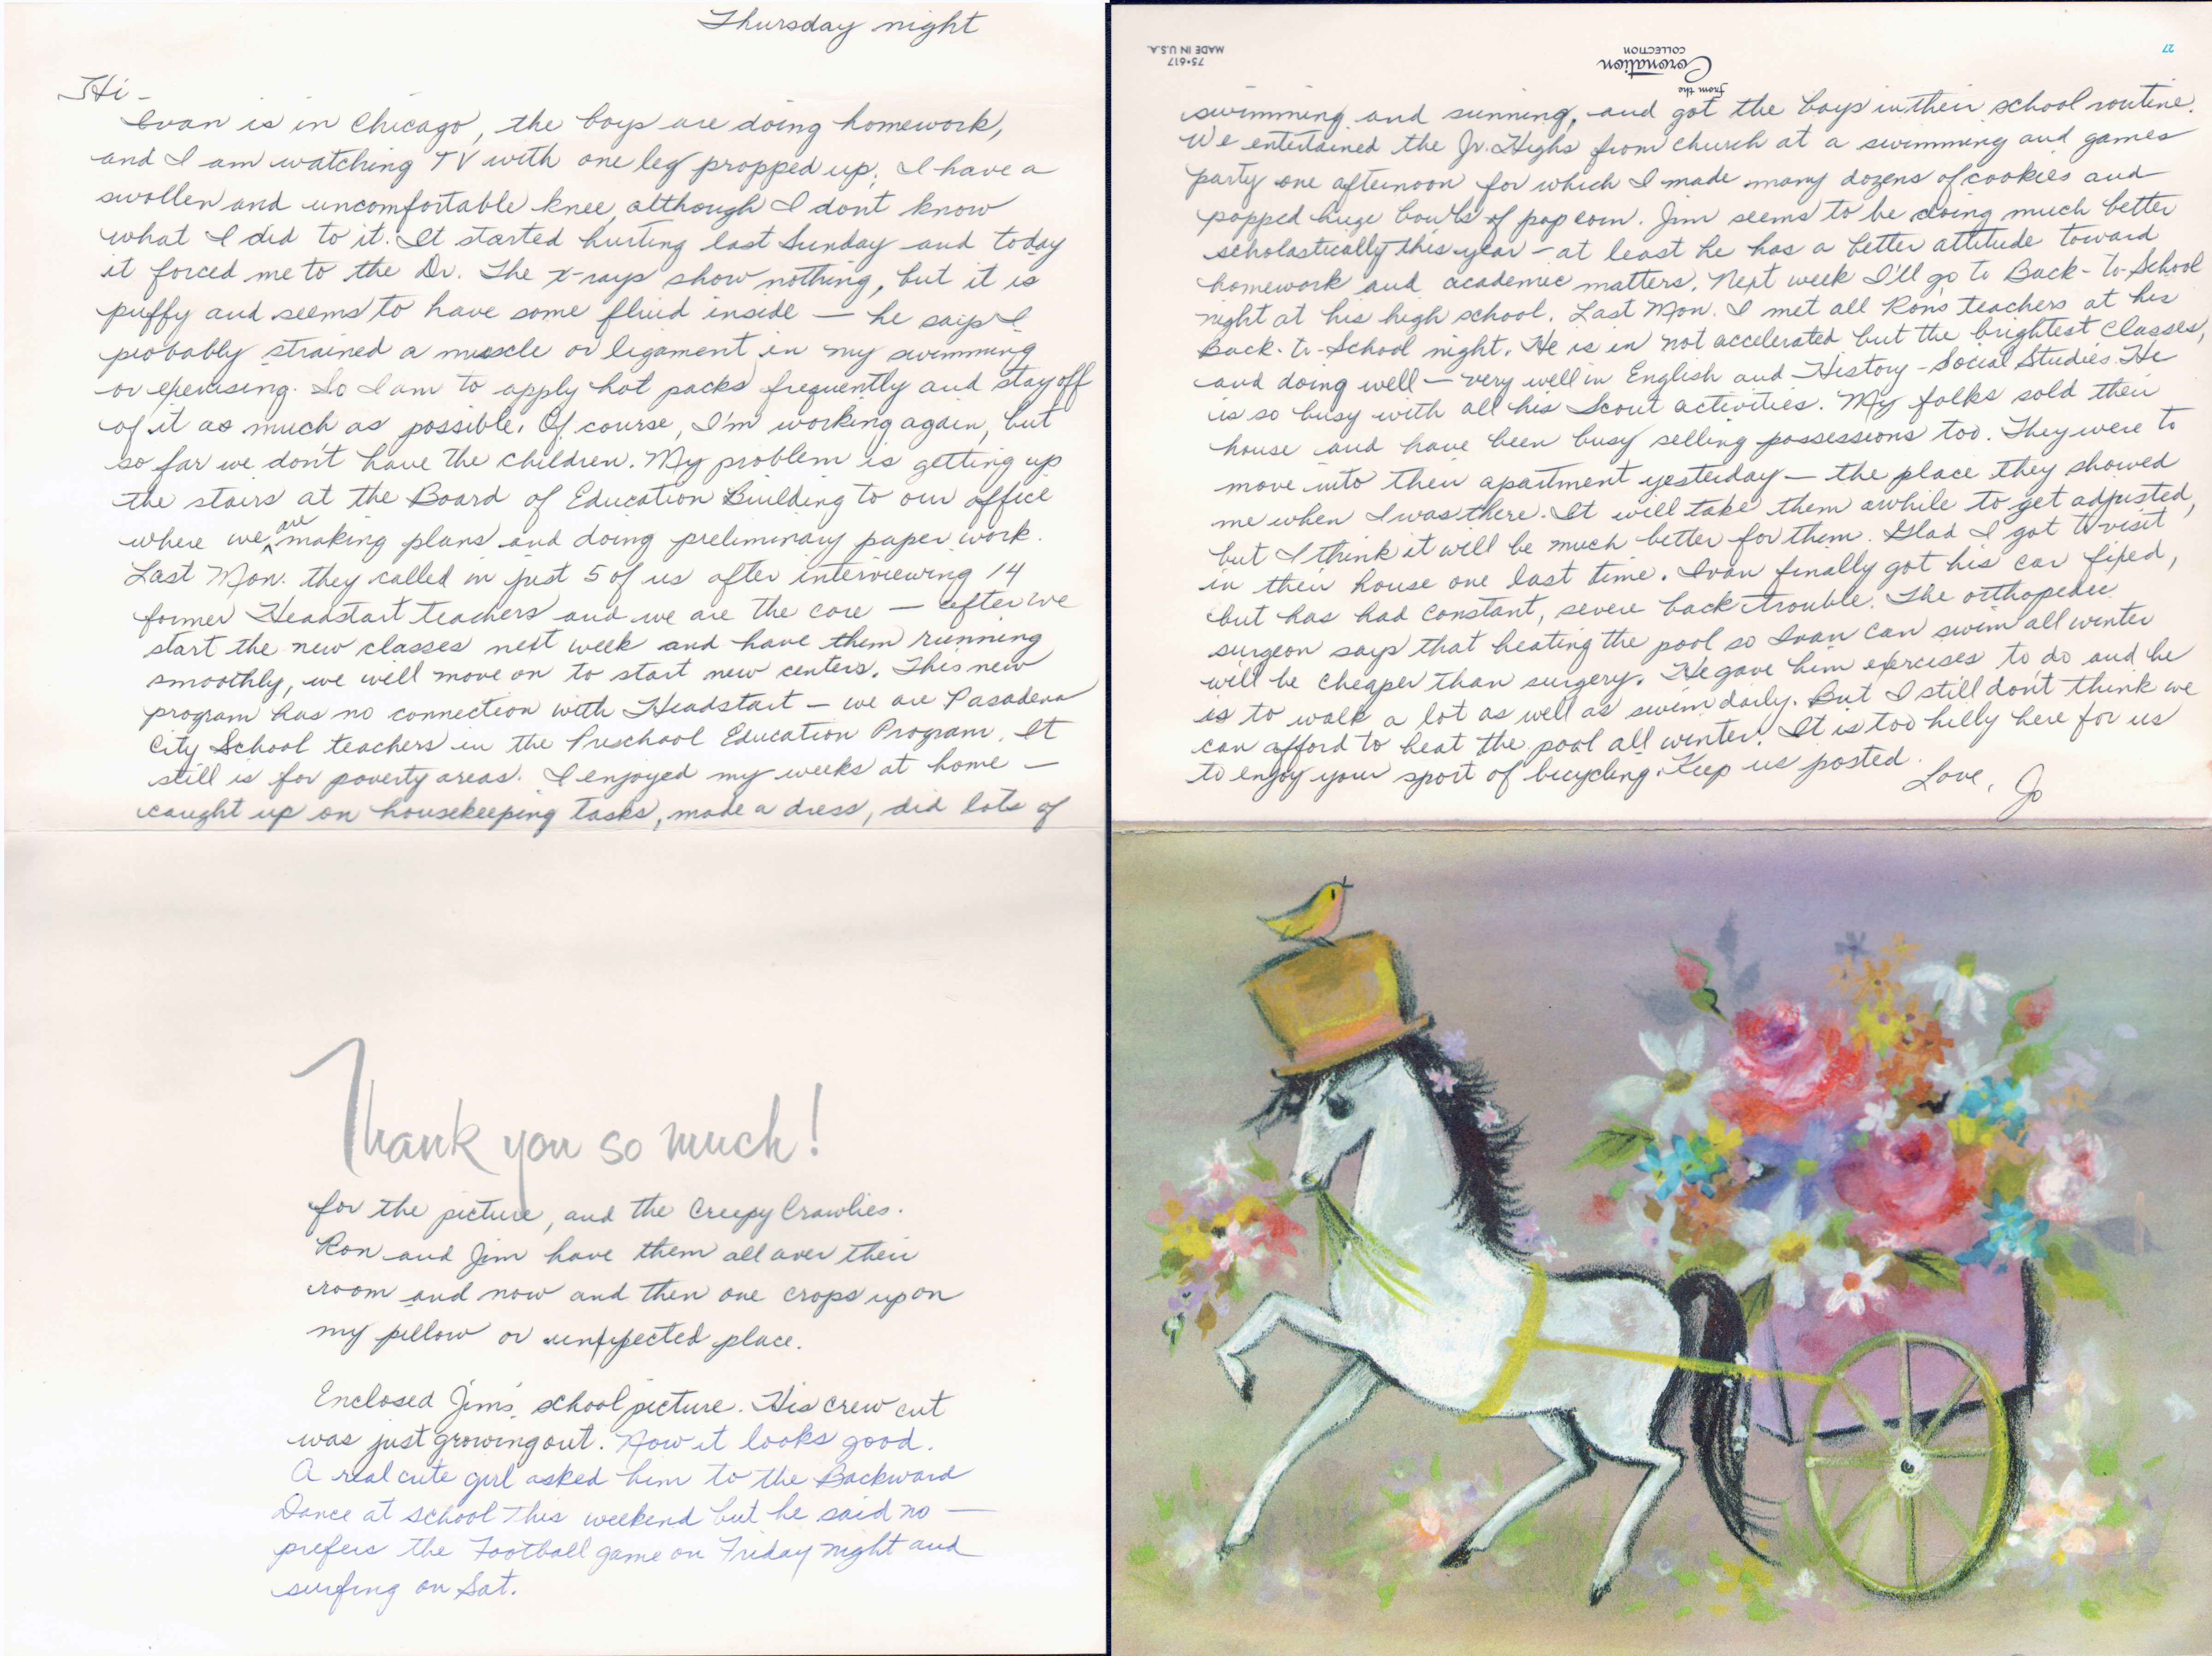 Thursday night
Hi -
Ivan is in Chicago, the boys are doing homework,
and I am watching TV with one leg propped up. I have a
swollen and uncomfortable knee, although I don't know
what I did to it. It started hurting last Sunday and today
it forced me to the Dr. The x-rays show nothing, but it is
puffy and seems to have some fluid inside — he says I
probably strained a muscle or ligament in my swimming
or exercising. So I am to apply hot packs frequently and stay off
of it as much as possible. Of course, I'm working again, but
so far we don't have the children. My problem is getting up
the stairs at the Board of Education Building to our office
where we are making plans and doing preliminary paper work.
Last Mon. they called in just 5 of us after interviewing 14
former Headstart teachers and we are the core — after we
start the new classes next week and have them running
smoothly, we will move on to start new centers. This new
program has no connection with Headstart — we are Pasadena
City School teachers in the Preschool Education Program. It
still is for poverty areas. I enjoyed my weeks at home —
caught up on housekeeping tasks, made a dress, did lots of
Thank you so much!
for the picture, and the Creepy Crawlies.
Ron and Jim have them all over their
room and now and then one crops up on
my pillow or unexpected place.
Enclosed Jim's school picture. His crew cut
was just growing out. Now it looks good.
A real cute girl asked him to the Backward
Dance at school this weekend but he said no —
prefers the Football game on Friday night and
surfing on Sat.
27
from the
Coronation
COLLECTION
75-617
MADE IN U.S.A.
swimming and sunning, and got the boys in their school routine.
We entertained the Jr. Highs from church at a swimming and games
party one afternoon for which I made many dozens of cookies and
popped huge bowls of pop corn. Jim seems to be doing much better
scholastically this year — at least he has a better attitude toward
homework and academic matters. Next week I'll go to Back-to-School
night at his high school. Last Mon. I met all Ron's teachers at his
Back-to-School night. He is in not accelerated but the brightest classes,
and doing well — very well in English and History - Social Studies. He
is so busy with all his Scout activities. My folks sold their
house and have been busy selling possessions too. They were to
move into their apartment yesterday — the place they showed
me when I was there. It will take them awhile to get adjusted,
but I think it will be much better for them. Glad I got to visit
in their house one last time. Ivan finally got his car fixed,
but has had constant, severe back trouble. The orthopedic
surgeon says that heating the pool so Ivan can swim all winter
will be cheaper than surgery. He gave him exercises to do and he
is to walk a lot as well as swim daily. But I still don't think we
can afford to heat the pool all winter. It is too hilly here for us
to enjoy your sport of bicycling. Keep us posted.
Love, Jo